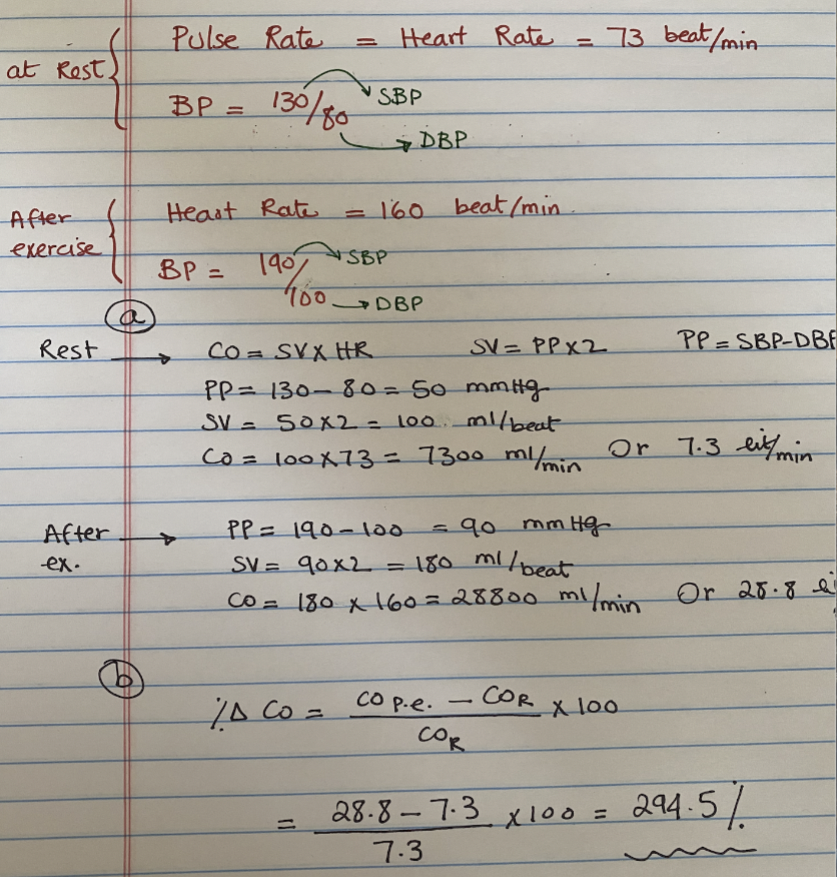 at Rest
Pulse Rate = Heart Rate = 73 beat/min
BP = 130/80
SBP
DBP
After
exercise
Heart Rate = 160 beat/min.
BP = 190/100
SBP
DBP
a
Rest → CO = SV X HR SV = PP X 2 PP = SBP-DBP
PP = 130 - 80 = 50 mmHg
SV = 50 X 2 = 100 ml/beat
CO = 100 X 73 = 7300 ml/min Or 7.3 lit/min
After
ex. → PP = 190 - 100 = 90 mmHg
SV = 90 X 2 = 180 ml/beat
CO = 180 X 160 = 28800 ml/min Or 28.8
b
%Δ CO = (CO P.e. - CO R) / CO R X 100
= (28.8 - 7.3) / 7.3 X 100 = 294.5 %